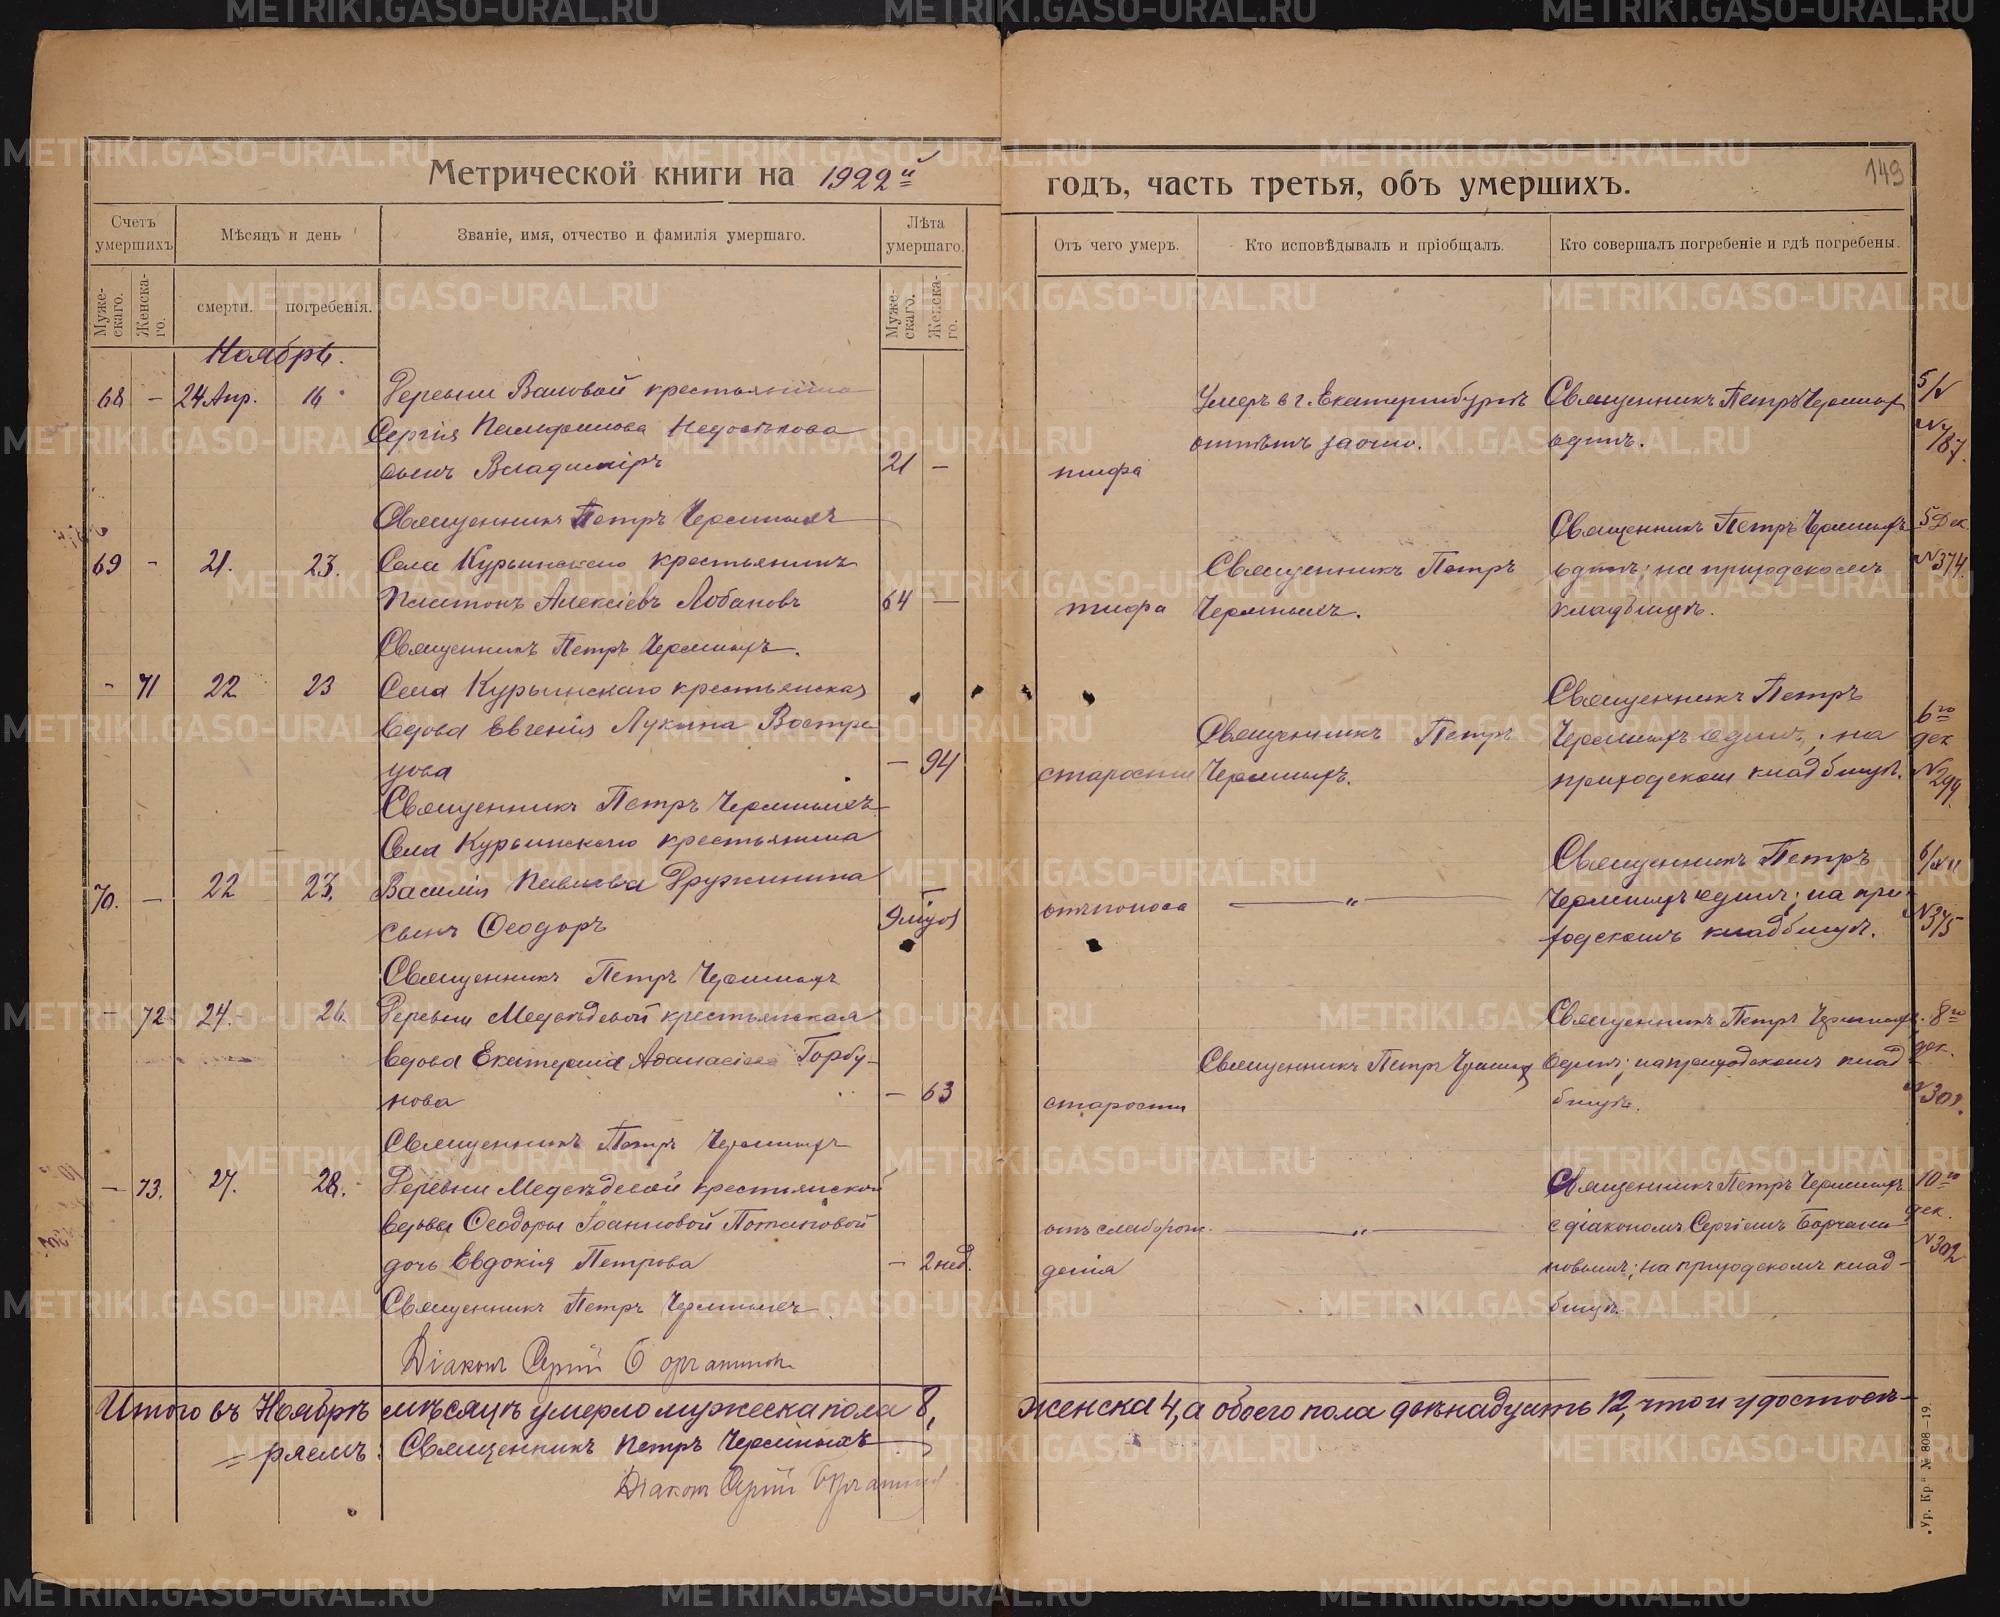 Метрической книги на 1922й
годъ, часть третья, объ умершихъ.
149
Счетъ умершихъ
Мѣсяцъ и день
Званіе, имя, отчество и фамилія умершаго.
Лѣта умершаго.
Отъ чего умеръ.
Кто исповѣдывалъ и пріобщалъ.
Кто совершалъ погребеніе и гдѣ погребены.
Мужескаго.
Женскаго.
смерти.
погребенія.
Мужескаго.
Женскаго.
Ноябрь.
68 — 24 Апр. 16
Деревни Валовой крестьянина
Сергія Памфилова
сынъ Владиміръ
21 —
тифа
Умеръ въ г. Екатеринбургѣ
отпѣтъ заочно.
Священникъ Петръ Черемныхъ
одинъ.
5/V
№ 787.
Священникъ Петръ Черемныхъ
69 - 21. 23.
Села Курьинскаго крестьянинъ
Платонъ Алексіевъ Лобановъ
64 —
тифа
Священникъ Петръ
Черемныхъ.
Священникъ Петръ Черемныхъ
одинъ; на приходскомъ
кладбищѣ.
5 Дек.
№ 374.
Священникъ Петръ Черемныхъ.
- 71 22 23
Села Курьинскаго крестьянская
вдова Евгенія Лукина Востре
цова
— 94
старости
Священникъ Петръ
Черемныхъ.
Священникъ Петръ
Черемныхъ одинъ; на
приходскомъ кладбищѣ.
6го
дек
№ 299.
Священникъ Петръ Черемныхъ
70. — 22 23.
Села Курьинскаго крестьянина
Василія Павлова Дружинина
сынъ Ѳеодоръ
отъ поноса
— „ —
Священникъ Петръ
Черемныхъ одинъ; на при-
ходскомъ кладбищѣ.
6/XII
№ 375
Священникъ Петръ Черемныхъ
- 72 24. 26.
Деревни Медвѣдевой крестьянская
вдова Екатерина Аѳанасіева Горбу-
нова
— 63
старости
Священникъ Петръ Черемныхъ
Священникъ Петръ Черемныхъ
одинъ; на приходскомъ клад
бищѣ.
8го
дек.
№ 301.
Священникъ Петръ Черемныхъ
— 73. 27. 28.
Деревни Медвѣдевой крестьянской
вдовы Ѳеодоры Іоанновой Потаповой
дочь Евдокія Петрова
— 2 нед.
отъ слаборож.
денія
— „ —
Священникъ Петръ Черемныхъ
с діакономъ Сергіемъ
новымъ; на приходскомъ клад-
бищѣ.
10го
дек.
№ 302
Священникъ Петръ Черемныхъ
Діаконъ Сергій
Итого въ Ноябрѣ мѣсяцѣ умерло мужеска пола 8,
женска 4, а обоего пола двѣнадцать 12, что и удостовѣ-
= ряемъ: Священникъ Петръ Черемныхъ
Діаконъ Сергій
„Ур. Кр.“ № 808—19.
METRIKI.GASO-URAL.RU